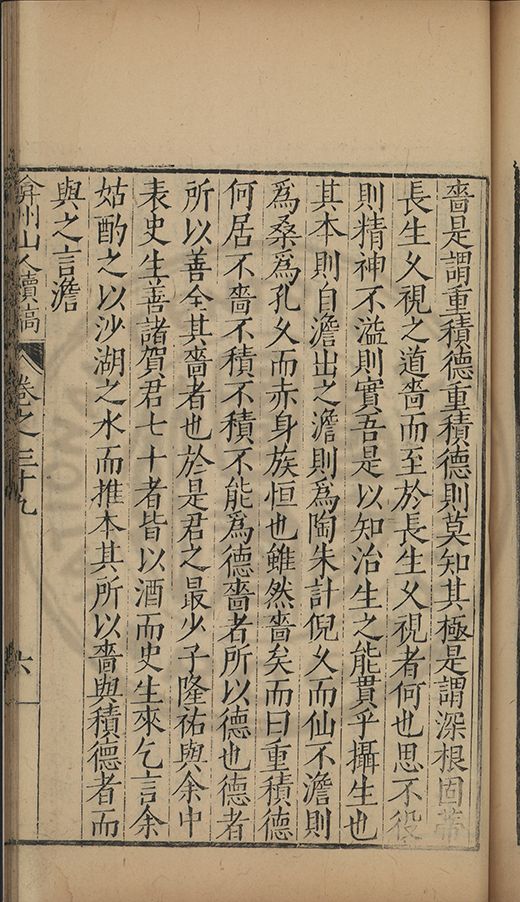 嗇是謂重積德重積德則莫知其極是謂深根固蒂
長生久視之道嗇而至於長生久視者何也思不役
則精神不溢則實吾是以知治生之能貫乎攝生也
其本則自澹出之澹則爲陶朱計倪久而仙不澹則
爲桑爲孔久而赤身族恒也雖然嗇矣而曰重積德
何居不嗇不積不積不能爲德嗇者所以德也德者
所以善全其嗇者也於是君之最少子隆祐與余中
表史生善諸賀君七十者皆以酒而史生來乞言余
姑酌之以沙湖之水而推本其所以嗇與積德者而
與之言澹
弇州山人續稿
卷之三十九
六